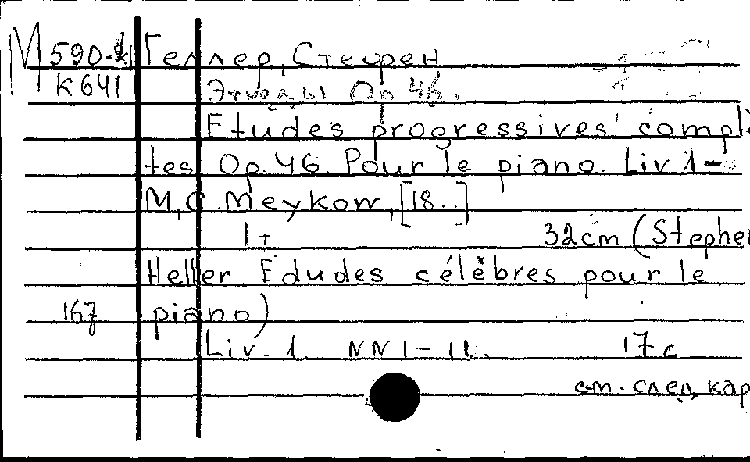 М 590-2 Геллер, Стефен
К 641 Этюды. Op. 46.
Etudes progressives complè
tes Op. 46. Pour le piano. Liv. 1-
M, C. Meykow, [18..]
1 т 32cm (Stephe
Heller Edudes célèbres pour le
167 piano)
Liv. 1. NN 1-11. 17 c
см. след. кар